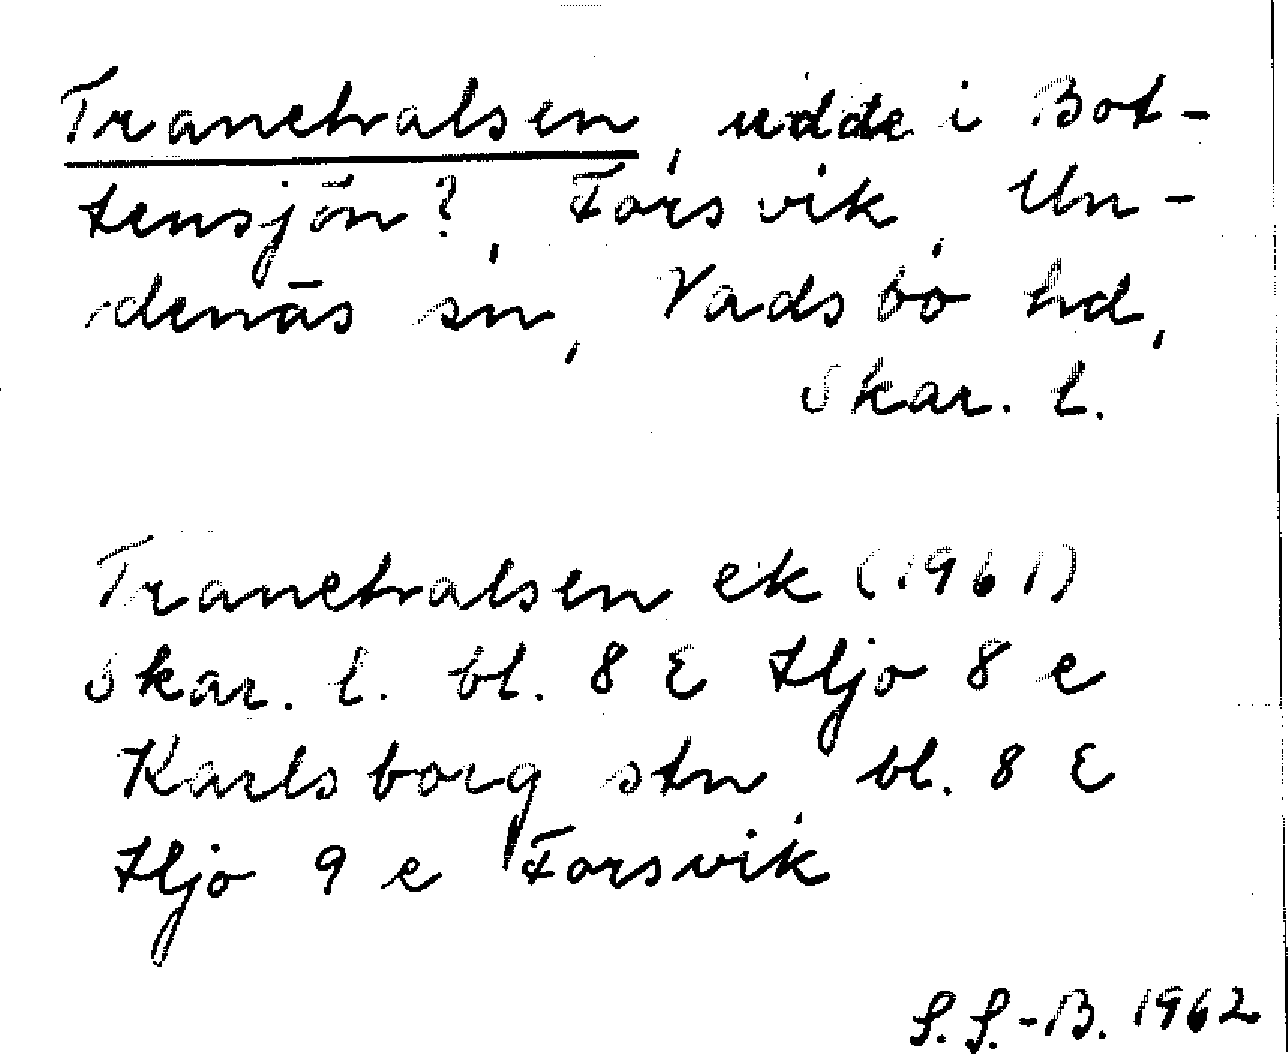 Tranehalsen, udde i Bot-
tensjön?, Forsvik, Un-
denäs sn, Vadsbo hd,
Skar. l.
Tranehalsen ek (1961)
Skar. l. bl. 8 E Hjo 8 e
Karlsborg stn, bl. 8 E
Hjo 9 e Forsvik
S.S.-B. 1962